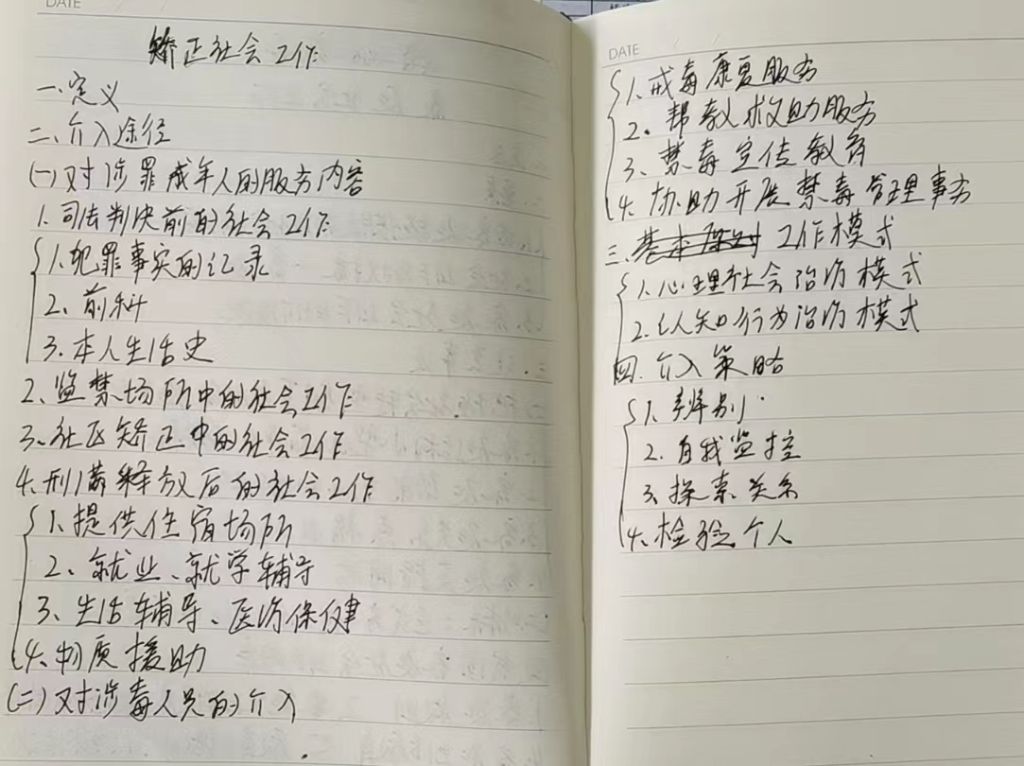 DATE
矫正社会工作
一.定义
二.介入途径
(一)对涉罪成年人的服务内容
1.司法判决前的社会工作
1.犯罪事实的记录
2.前科
3.本人生活史
2.监禁场所中的社会工作
3.社区矫正中的社会工作
4.刑满释放后的社会工作
1.提供住宿场所
2、就业、就学辅导
3、生活辅导、医疗保健
4.物质援助
(二)对涉毒人员的介入
DATE
1.戒毒康复服务
2.帮教救助服务
3.禁毒宣传教育
4.协助开展禁毒管理事务
三.基本原则 工作模式
1.心理社会治疗模式
2.认知行为治疗模式
四.介入策略
1.辨别
2.自我监控
3.探索关系
4.检验个人